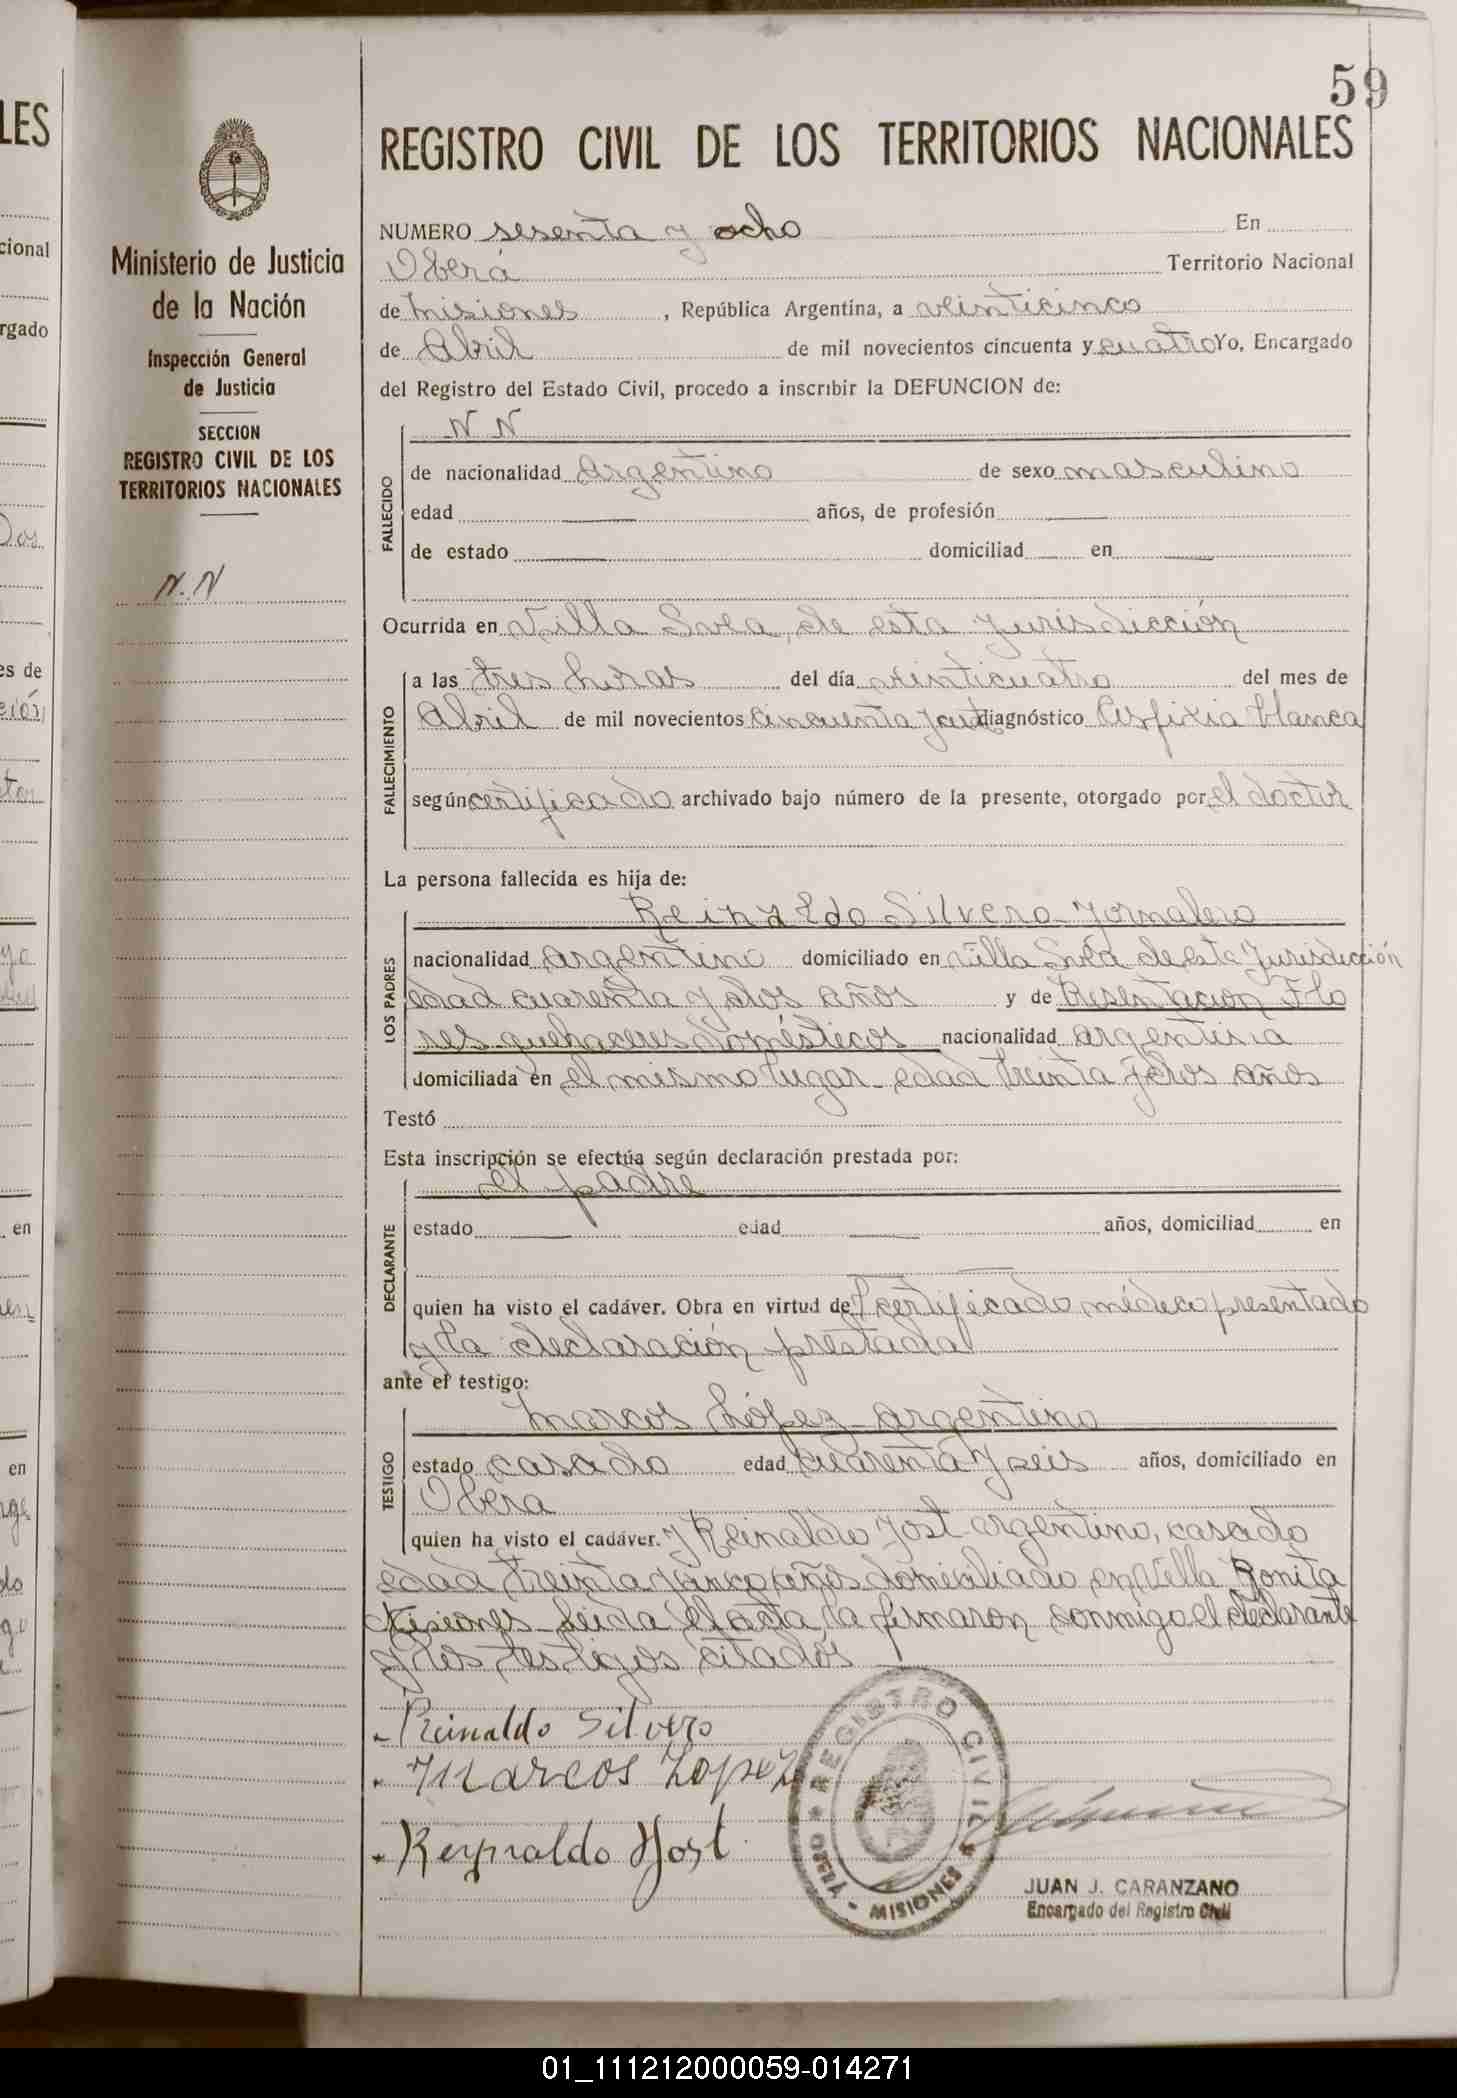 59
REGISTRO CIVIL DE LOS TERRITORIOS NACIONALES
Ministerio de Justicia
de la Nación
Inspección General
de Justicia
SECCION
REGISTRO CIVIL DE LOS
TERRITORIOS NACIONALES
N.N
NUMERO sesenta y ocho En
Oberá Territorio Nacional
de Misiones, República Argentina, a veinticinco
de Abril de mil novecientos cincuenta y cuatro Yo, Encargado
del Registro del Estado Civil, procedo a inscribir la DEFUNCION de:
FALLECIDO
N N
de nacionalidad Argentino de sexo masculino
edad años, de profesión
de estado domiciliad en
Ocurrida en Villa Svea, de esta jurisdicción
FALLECIMIENTO
a las tres horas del día veinticuatro del mes de
Abril de mil novecientos cincuenta y diagnóstico Asfixia blanca
según certificado archivado bajo número de la presente, otorgado por el doctor
La persona fallecida es hija de:
LOS PADRES
Reinaldo Silvero - jornalero
nacionalidad argentino domiciliado en villa Svea de esta jurisdicción
edad cuarenta y dos años y de Presentacion Flo
res quehaceres domésticos nacionalidad argentina
domiciliada en el mismo lugar - edad treinta y dos años
Testó
Esta inscripción se efectúa según declaración prestada por:
DECLARANTE
el padre
estado edad años, domiciliad en
quien ha visto el cadáver. Obra en virtud del certificado médico presentado
y la declaración prestada
ante el testigo:
TESTIGO
Marcos López - argentino
estado casado edad cuarenta y seis años, domiciliado en
Obera
quien ha visto el cadáver. y Reinaldo Jost argentino, casado
edad treinta y cinco años domiciliado en Villa Bonita
Misiones - Leida el acta la firmaron conmigo el declarante
y los testigos citados
Reinaldo Silvero
Marcos Lopez
Reynaldo Yost
REGISTRO CIVIL
OBERA - MISIONES
JUAN J. CARANZANO
Encargado del Registro Civil
01_111212000059-014271